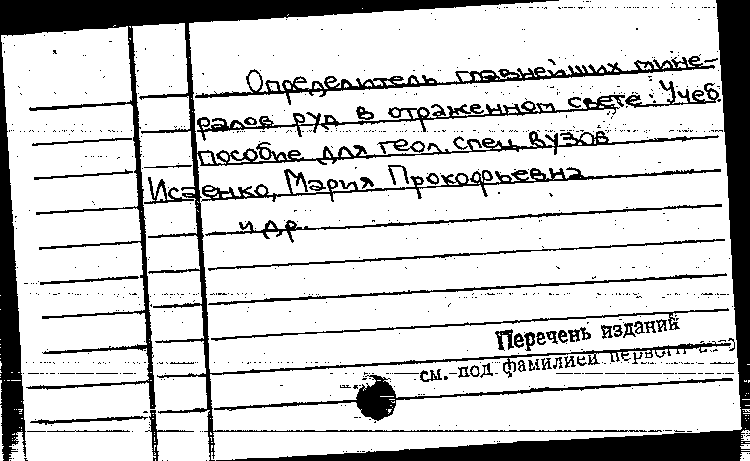 Определитель главнейших мине-
ралов руд в отраженном свете: Учеб
пособие для геол. спец. вузов
Исаенко, Мария Прокофьевна
и др.
Перечень изданий
см. под фамилией первого